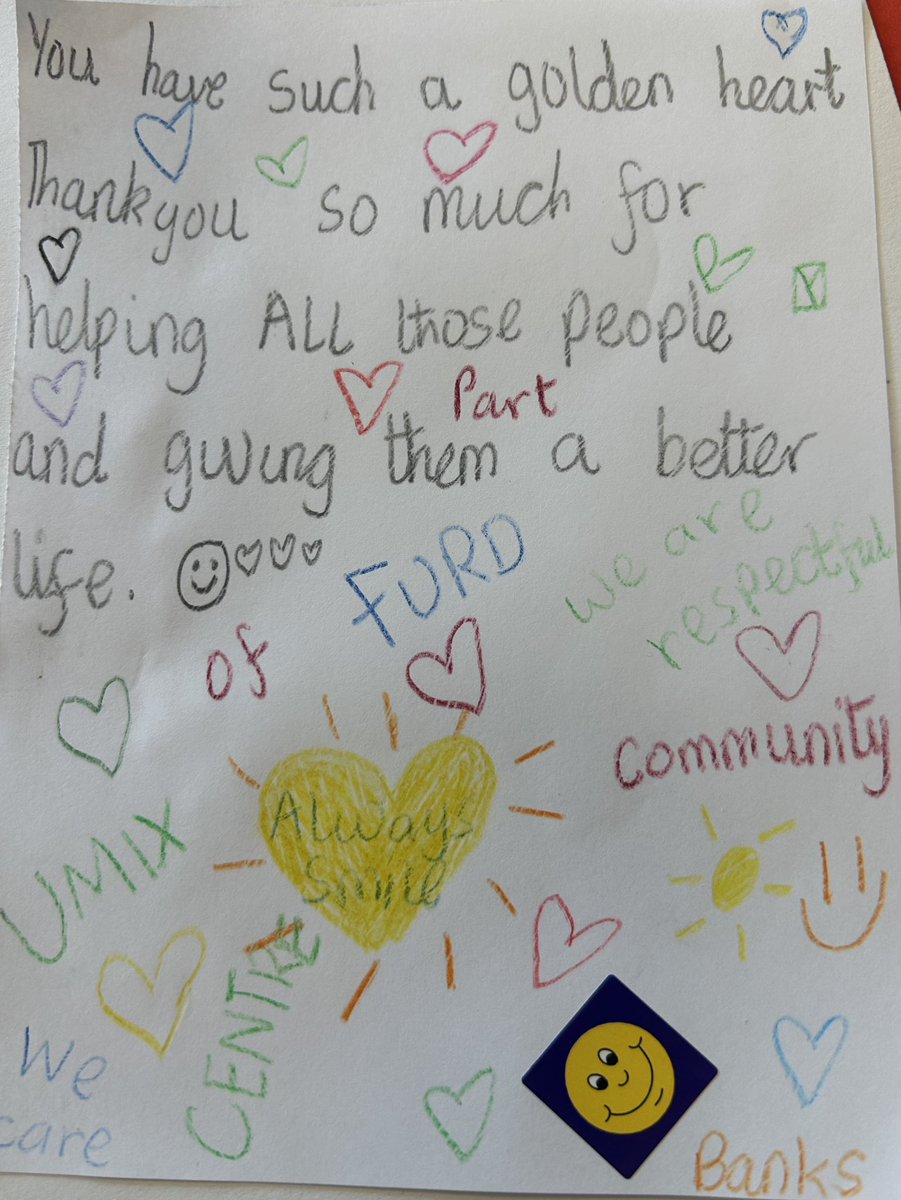 You have such a golden heart
Thankyou so much for
helping ALL those people
Y
Part
and giving them a better
life.
FURD
We are
respectful
of
community
UMIX
Always
Smile
CENTRE
We
care
Banks